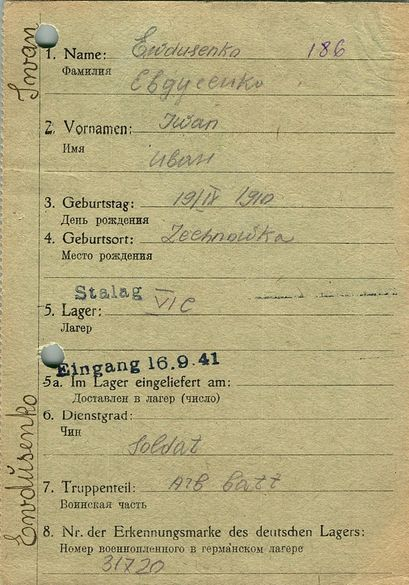 Iwan
Ewdusenko
1. Name: Ewdusenko 186
Фамилия
Евдусенко
2. Vornamen: Iwan
Имя
Иван
3. Geburtstag: 19/IV 1910
День рождения
4. Geburtsort: Zechnowka
Место рождения
Stalag VI C
5. Lager:
Лагерь
Eingang 16.9.41
5a. Im Lager eingeliefert am:
Доставлен в лагерь (число)
6. Dienstgrad:
Чин
Soldat
7. Truppenteil: Arb Batt
Воинская часть
8. Nr. der Erkennungsmarke des deutschen Lagers:
Номер военнопленного в германском лагере
31720